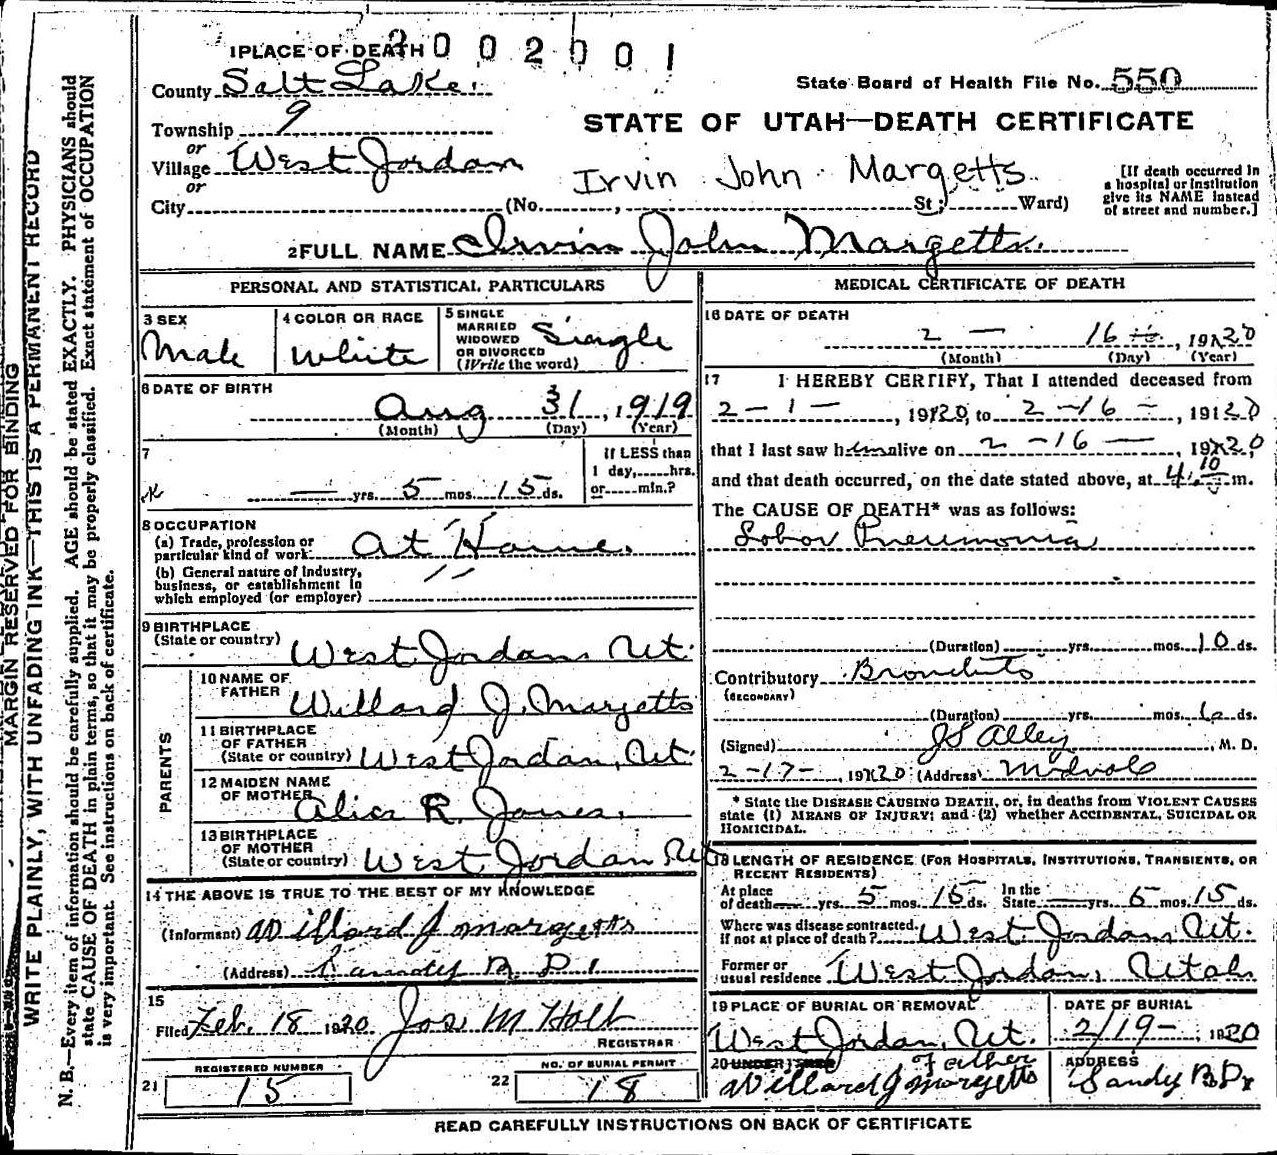 MARGIN RESERVED FOR BINDING
WRITE PLAINLY, WITH UNFADING INK—THIS IS A PERMANENT RECORD
N. B.—Every item of information should be carefully supplied. AGE should be stated EXACTLY. PHYSICIANS should
state CAUSE OF DEATH in plain terms, so that it may be properly classified. Exact statement of OCCUPATION
is very important. See instructions on back of certificate.
1 PLACE OF DEATH
2002001
County Salt Lake.
State Board of Health File No. 550
Township 9
STATE OF UTAH—DEATH CERTIFICATE
or
Village West Jordan
or
Irvin John Margetts
[If death occurred in
a hospital or institution
give its NAME instead
of street and number.]
City (No. , St.; Ward)
2 FULL NAME Irvin John Margetts.
PERSONAL AND STATISTICAL PARTICULARS
3 SEX
Male
4 COLOR OR RACE
White
5 SINGLE
MARRIED
WIDOWED
OR DIVORCED
(Write the word)
Single
6 DATE OF BIRTH
Aug 31, 1919
(Month) (Day) (Year)
7
— yrs. 5 mos. 15 ds.
If LESS than
1 day, hrs.
or min.?
8 OCCUPATION
(a) Trade, profession or
particular kind of work At Home.
(b) General nature of industry,
business, or establishment in
which employed (or employer) "
9 BIRTHPLACE
(State or country) West Jordan Ut.
PARENTS
10 NAME OF
FATHER Willard J. Margetts
11 BIRTHPLACE
OF FATHER
(State or country) West Jordan, Ut.
12 MAIDEN NAME
OF MOTHER Alice R. Jones.
13 BIRTHPLACE
OF MOTHER
(State or country) West Jordan, Ut
14 THE ABOVE IS TRUE TO THE BEST OF MY KNOWLEDGE
(Informant) Willard J Margetts
(Address) Sandy R. D 1
15
Filed Feb. 18 1920 Jos. M Holt
REGISTRAR
REGISTERED NUMBER
21 15
NO. OF BURIAL PERMIT
22 18
MEDICAL CERTIFICATE OF DEATH
16 DATE OF DEATH
2 — 16 th, 1920
(Month) (Day) (Year)
17 I HEREBY CERTIFY, That I attended deceased from
2-1-, 1920, to 2-16-, 1920
that I last saw him alive on 2-16-, 1920,
and that death occurred, on the date stated above, at 4 10 m.
The CAUSE OF DEATH* was as follows:
Lobar Pneumonia
(Duration) yrs. mos. 10 ds.
Contributory Bronchitis
(SECONDARY)
(Duration) yrs. mos. ds.
(Signed) JS Alley, M. D.
2-17-, 1920 (Address) Midvale
* State the DISEASE CAUSING DEATH, or, in deaths from VIOLENT CAUSES
state (1) MEANS OF INJURY; and (2) whether ACCIDENTAL, SUICIDAL OR
HOMICIDAL.
18 LENGTH OF RESIDENCE (FOR HOSPITALS, INSTITUTIONS, TRANSIENTS, OR
RECENT RESIDENTS)
At place
of death — yrs. 5 mos. 15 ds.
In the
State — yrs. 5 mos. 15 ds.
Where was disease contracted,
if not at place of death? West Jordan, Ut.
Former or
usual residence West Jordan, Utah
19 PLACE OF BURIAL OR REMOVAL
West Jordan, Ut.
DATE OF BURIAL
2/19-, 1920
20 UNDERTAKER Father
Willard J Margetts
ADDRESS
Sandy R.D 1
READ CAREFULLY INSTRUCTIONS ON BACK OF CERTIFICATE